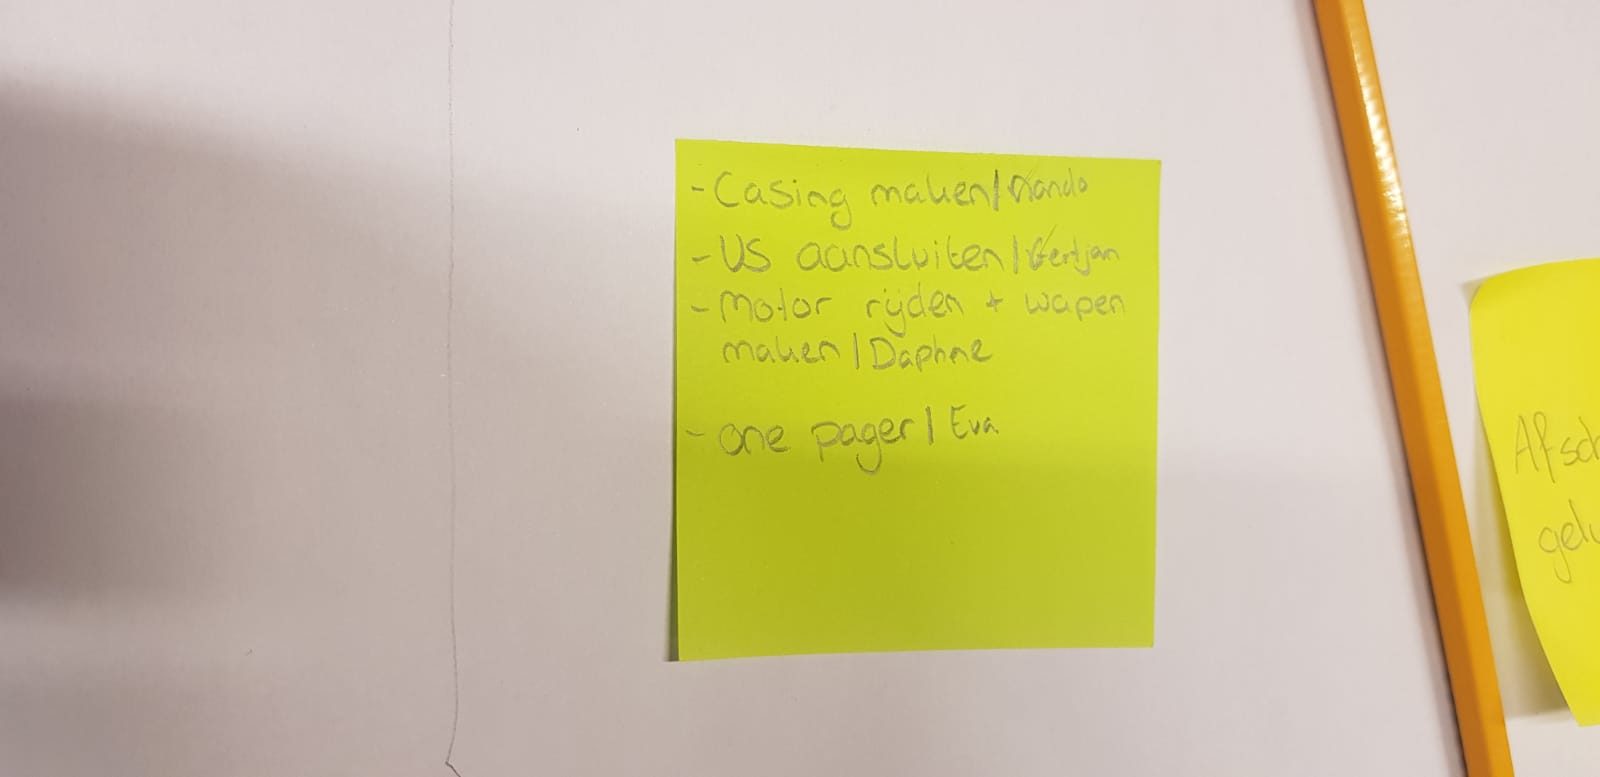 - Casing maken/Nando
- US aansluiten/Gertjan
- Motor rijden + wapen
maken/Daphne
- one pager/Eva
Afsch
gelu